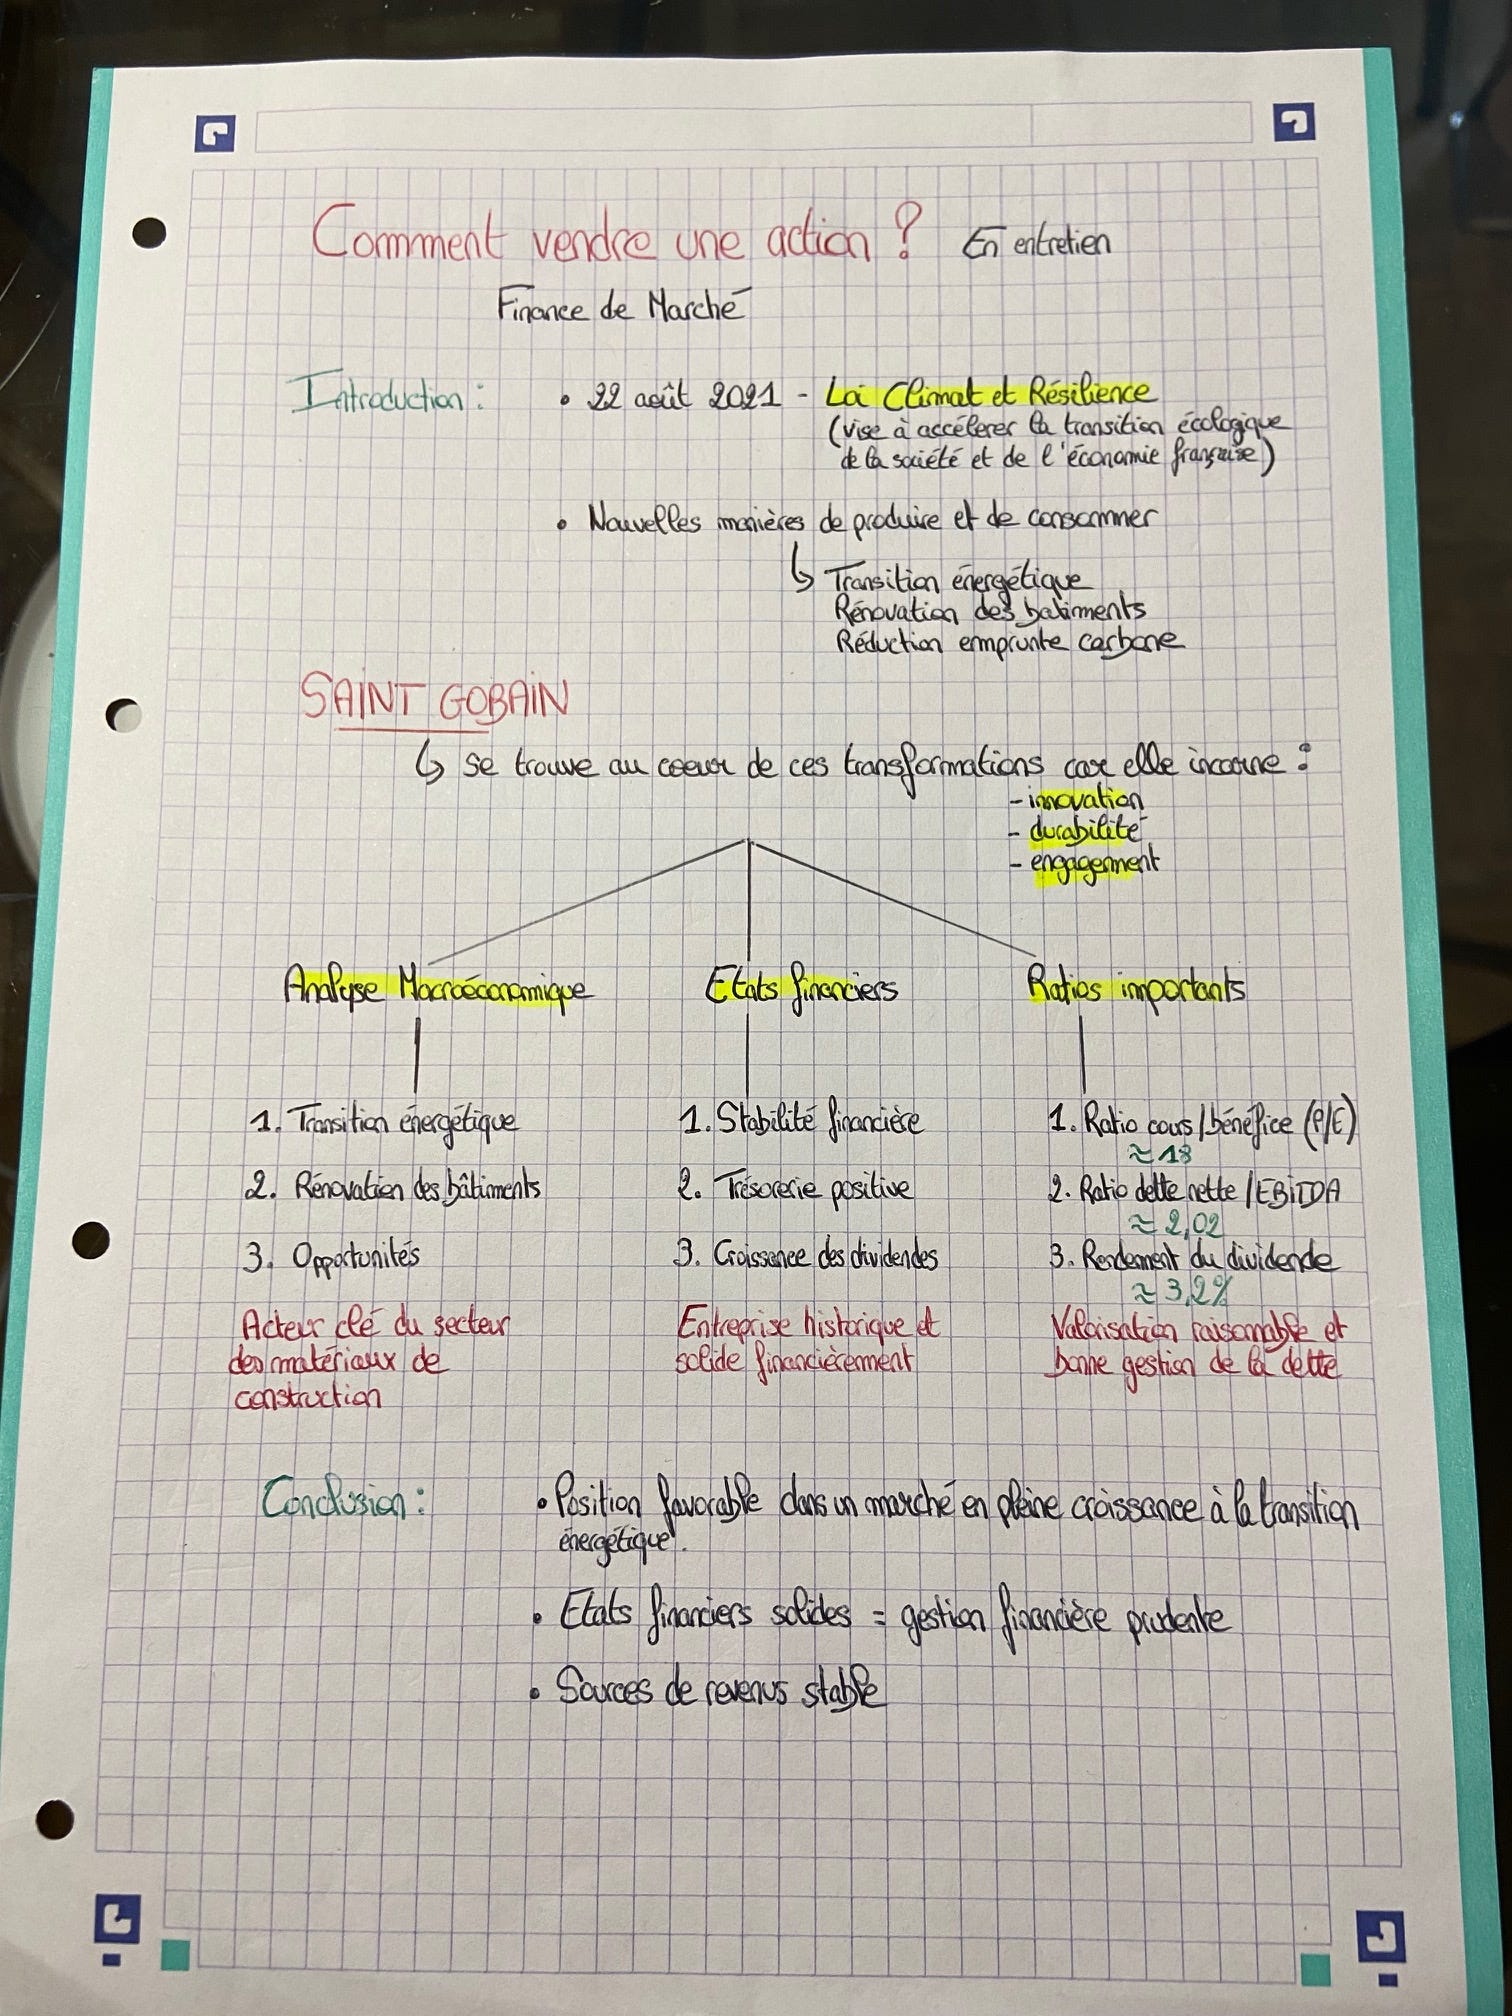 Comment vendre une action ? En entretien
Finance de Marché
Introduction : • 22 août 2021 - Loi Climat et Résilience
(vise à accélerer la transition écologique
de la société et de l'économie française)
• Nouvelles manières de produire et de consommer
↳ Transition énergétique
Rénovation des batiments
Réduction emprunte carbone
SAINT GOBAIN
↳ se trouve au coeur de ces transformations car elle incarne :
- innovation
- durabilité
- engagement
Analyse Macroéconomique
1. Transition énergétique
2. Rénovation des bâtiments
3. Opportunités
Acteur clé du secteur
des matériaux de
construction
Etats financiers
1. Stabilité financière
2. Trésorerie positive
3. Croissance des dividendes
Entreprise historique et
solide financièrement
Ratios importants
1. Ratio cours/bénéfice (P/E)
≈ 18
2. Ratio dette nette/EBITDA
≈ 2,02
3. Rendement du dividende
≈ 3,2%
Valorisation raisonnable et
bonne gestion de la dette
Conclusion : • Position favorable dans un marché en pleine croissance à la transition
énergétique.
• Etats financiers solides = gestion financière prudente
• Sources de revenus stable